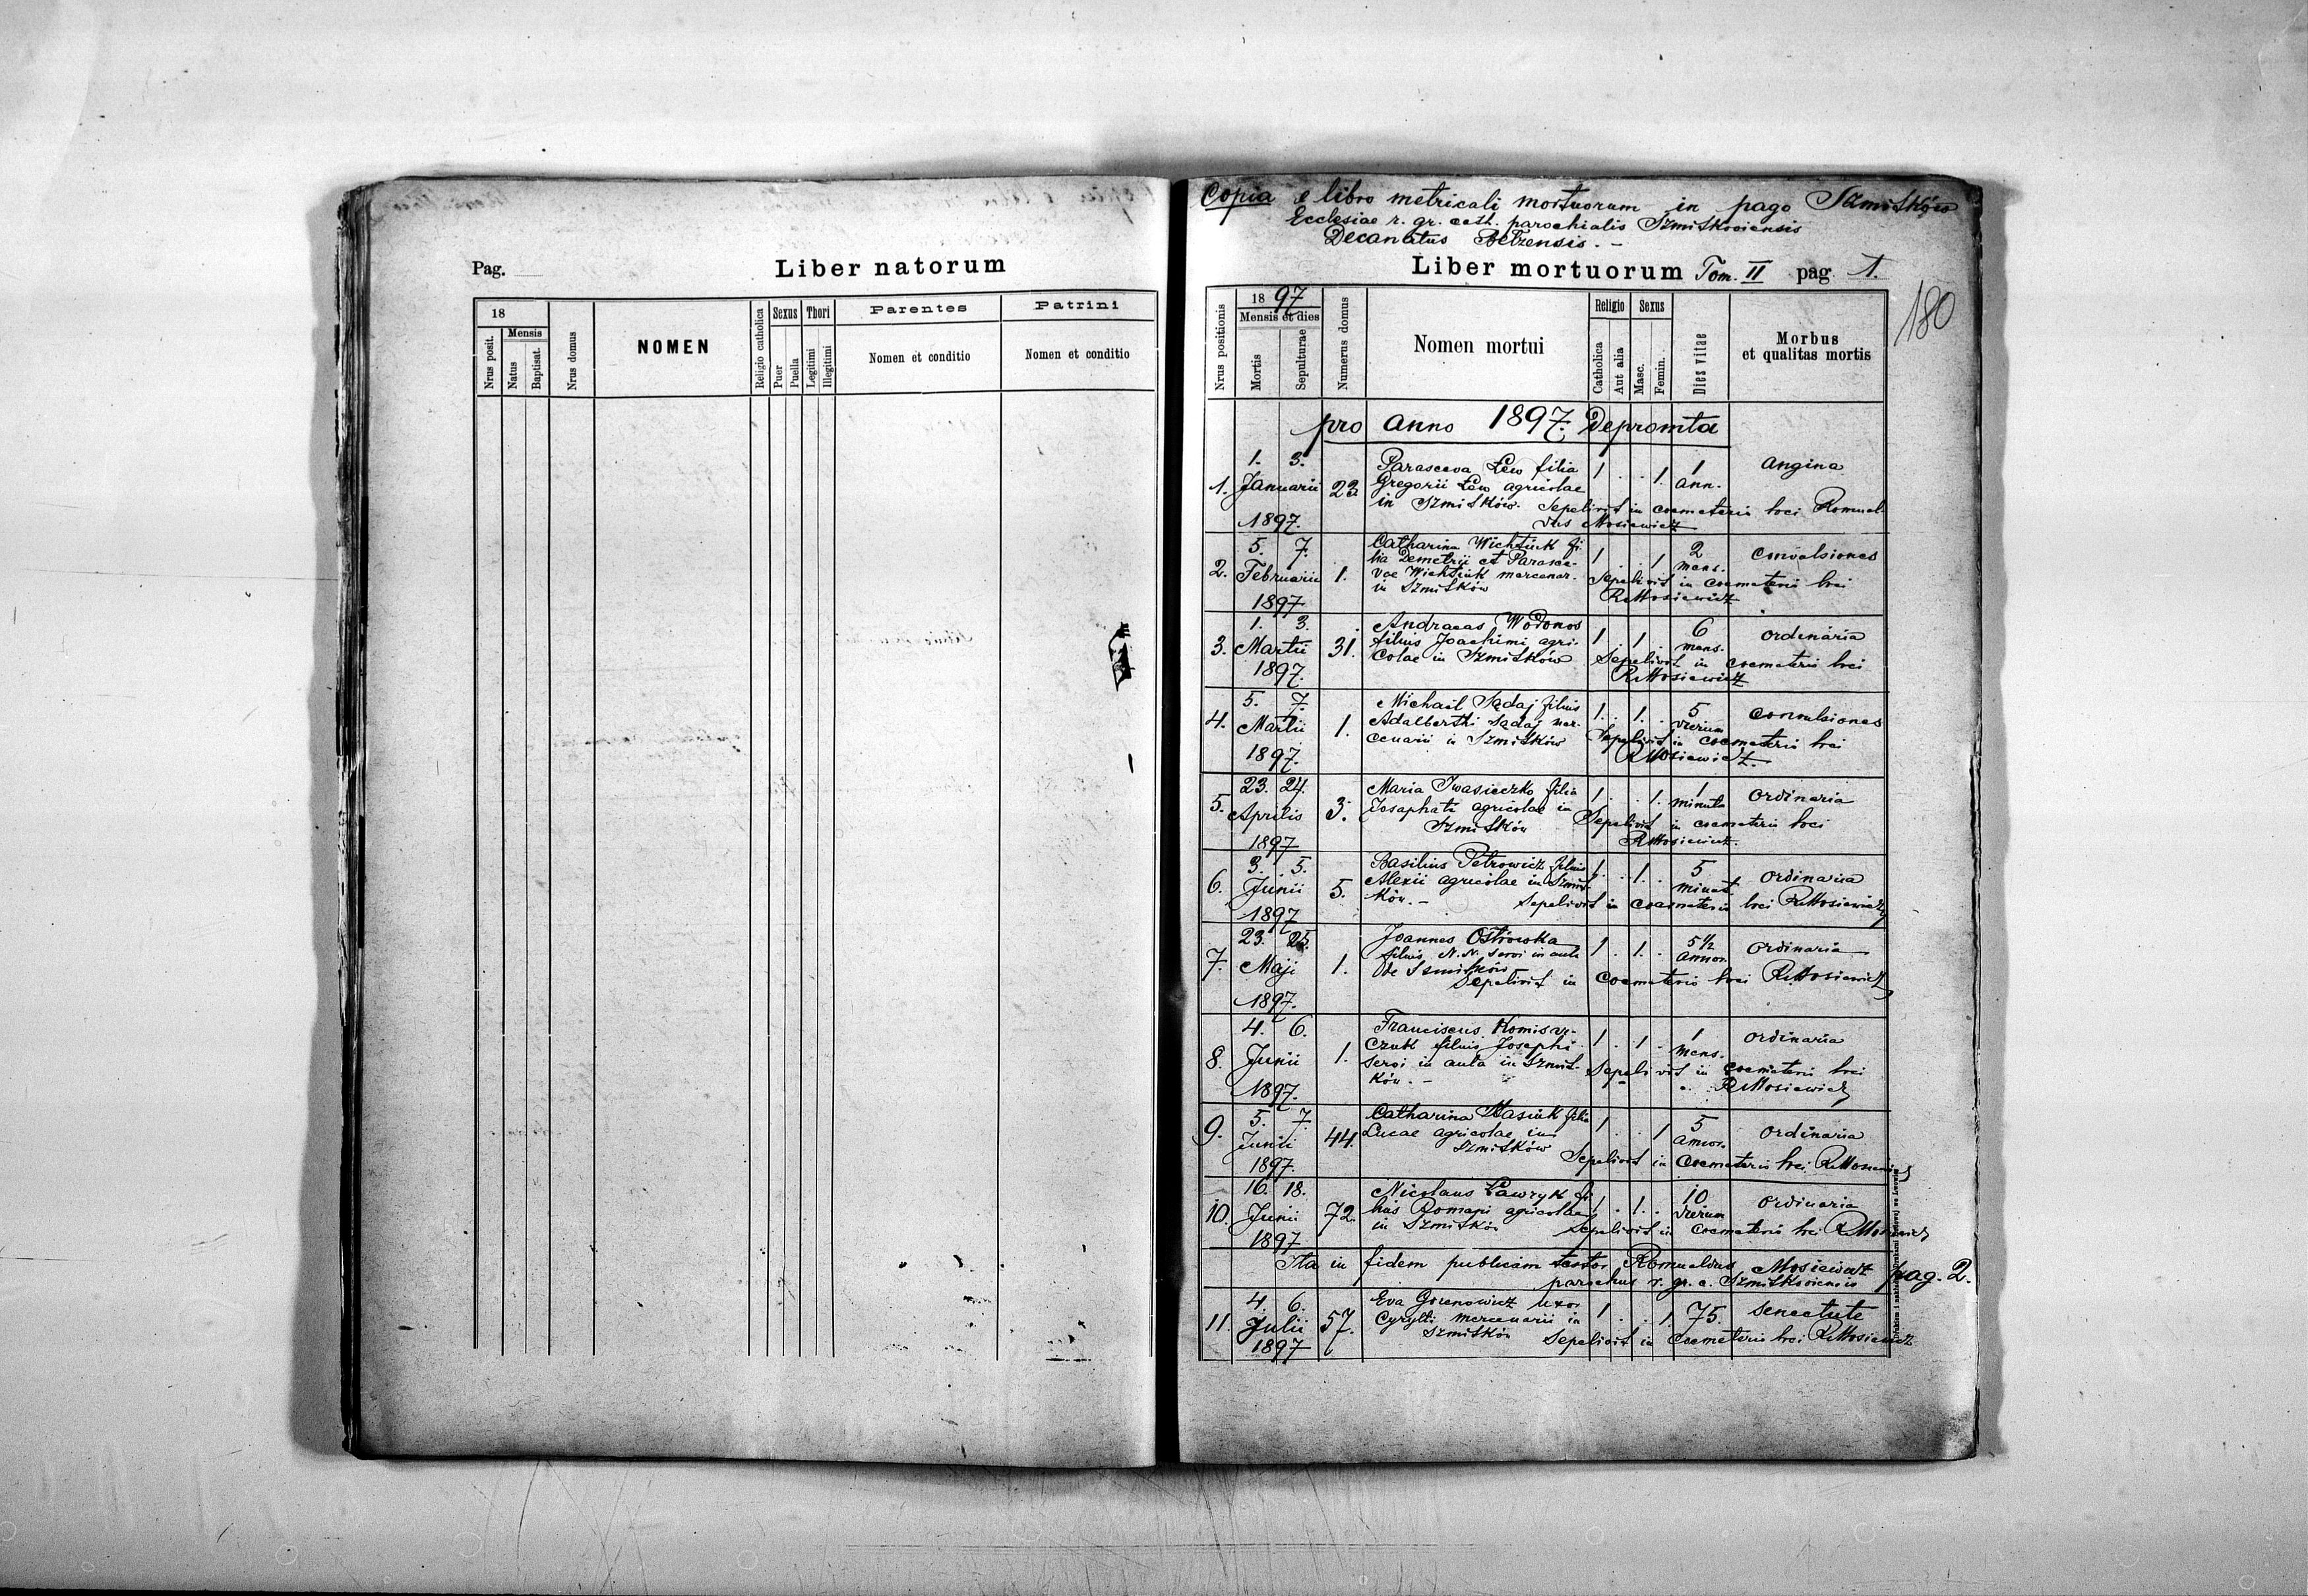 Pag.
Liber natorum
18
Mensis
Nrus posit.
Natus
Baptisat.
Nrus domus
NOMEN
Religio catholica
Sexus
Puer
Puella
Thori
Legitimi
Illegitimi
Parentes
Nomen et conditio
Patrini
Nomen et conditio
Copia e libro metricali mortuorum in pago Szmitków
Ecclesiae r. gr. cath. parochialis Szmitkoviensis
Decanatus Belzensis. -
Liber mortuorum Tom. II pag 1.
180
Nrus positionis
1897
Mensis et dies
Mortis
Sepulturae
Numerus domus
Nomen mortui
Religio
Catholica
Aut alia
Sexus
Masc.
Femin.
Dies vitae
Morbus
et qualitas mortis
pro anno 1897. Depromta
1. 3. Parasceva Lew filia 1 . . 1 1 angina
1. Januarii 23 Gregorii Lew agricolae ann.
in Szmitków. Sepelivit in coemeterio loci Romual-
1897. dus Mosiewicz
5. 7. Catharina Wichtiuk fi- 1 . . 1 2 convulsiones
lia Demetrii et Parasce- mens.
2. Februarii 1. vae Wichtiuk mercenar. Sepelivit in coemeterio loci
in Szmitków R. Mosiewicz
1897
1. 3. Andraeas Wodonos 1 . 1 . 6 ordinaria
3. Martii 31. filius Joachimi agri- mens.
colae in Szmitków Sepelivit in coemeterio loci
1897. R. Mosiewicz
5. 7. Michael Sądaj filius 1 . 1 . 5 convulsiones
4. Martii 1. Adalberthi Sądaj mer- dierum
cenarii in Szmitków Sepelivit in coemeterio loci
1897. R. Mosiewicz.
23. 24. Maria Iwasieczko filia 1 . . 1. 1 ordinaria
5. Aprilis 3. Josaphati agricolae in minuta
Szmitków Sepelivit in coemeterio loci
1897 R. Mosiewicz.
3. 5. Basilius Petrowicz filius 1 . 1 . 5 ordinaria
6. Junii 5. Alexii agricolae in Szmit- minut.
ków. - Sepelivit in coemeterio loci R. Mosiewicz
1897
23. 25. Joannes Ostrowka 1 . 1 . 5 1/2 ordinaria
filius N. N. servi in aula annor.
7. Maji 1. de Szmitków
Sepelivit in coemeterio loci R. Mosiewicz
1897.
4. 6. Franciscus Komisar- 1 . 1 . 1 ordinaria
8. Junii 1. czuk filius Josephi mens.
servi in aula in Szmit- Sepelivit in coemeterio loci
1897. ków. - R. Mosiewicz
5. 7. Catharina Stasiuk filia 1 . . 1 5 ordinaria
9. Junii 44. Lucae agricolae in annor.
Szmitków Sepelivit in coemeterio loci R. Mosiewicz
1897.
16. 18. Nicolaus Ławryk fi- 1 . 1 . 10 ordinaria
10. Junii 72. lius Romani agricolae dierum
in Szmitków Sepelivit in coemeterio loci R. Mosiewicz
1897
Ita in fidem publicam testor Romualdus Mosiewicz pag. 2.
parochus r. gr. c. Szmitkoviensis
4. 6. Eva uxor 1 . . 1. 75. senectute
11. Julii 57. Cyrylli mercenarii in
Szmitków Sepelivit in coemeterio loci R. Mosiewicz
1897